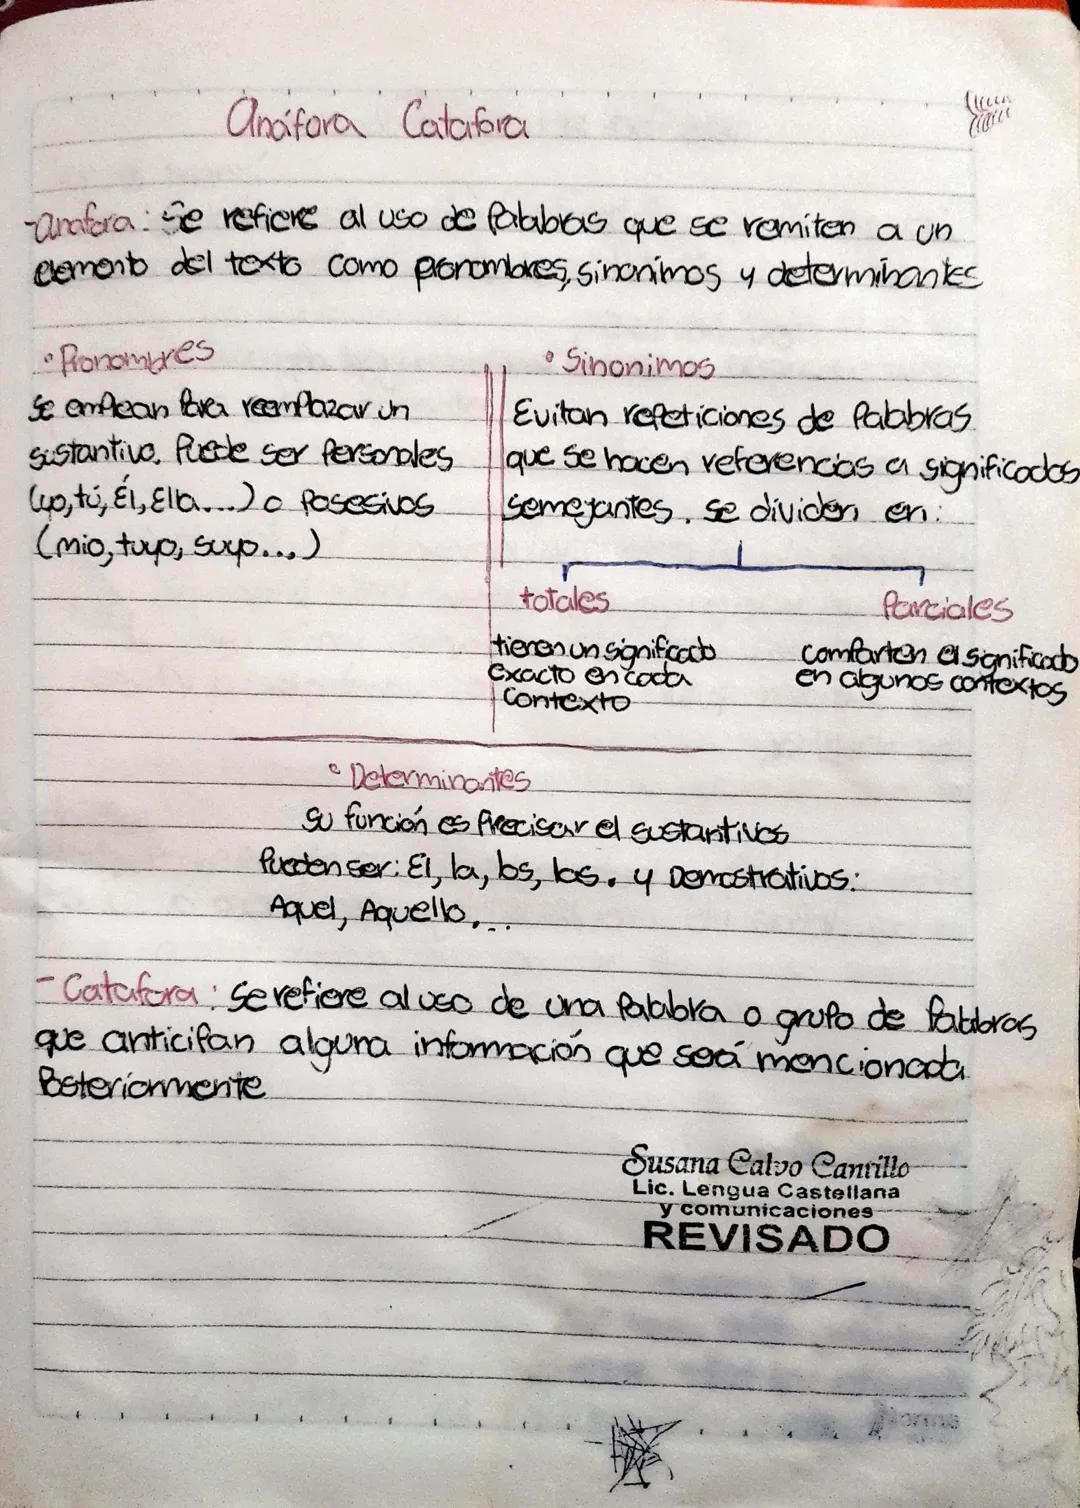 Anáfora Catafora
-anafora: Se refiere al uso de Palabras que se remiten a un
elemento del texto como pronombres, sinonimos y determinantes
• Pronombres
Se emplean Para reemplazar un
sustantivo. Puede ser Personales
(yo, tú, Él, Ella....) o Posesivos
(mio, tuyo, suyo....)
• Sinonimos
Evitan repeticiones de Palabras
que se hacen referencias a significados
semejantes. se dividen en:
totales
tienen un significado
exacto en cada
contexto
Parciales
comparten el significado
en algunos contextos
• Determinantes
Su función es Precisar el sustantivos
Pueden ser: El, la, los, las. y Demostrativos:
Aquel, Aquello....
- Catafora: Se refiere al uso de una Palabra o grupo de Palabras
que anticipan alguna información que será mencionada
Posteriormente
Susana Calvo Cantillo
Lic. Lengua Castellana
y comunicaciones
REVISADO